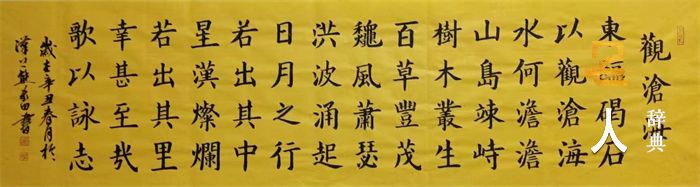 觀滄海
東臨碣石
以觀滄海
水何澹澹
山島竦峙
樹木叢生
百草豐茂
龝風蕭瑟
洪波涌起
日月之行
若出其中
星漢燦爛
若出其里
幸甚至哉
歌以詠志
歲在辛丑春月於
漢上
書
人
辭典